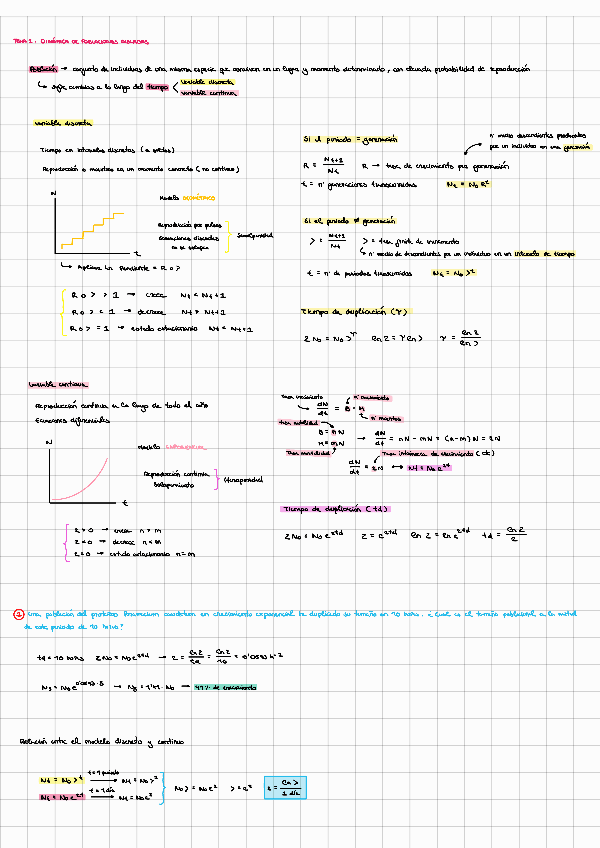 TEMA 1: DINÁMICA DE POBLACIONES AISLADAS
Población → conjunto de individuos de una misma especie que conviven en un lugar y momento determinado, con elevada probabilidad de reproducción
↳ sufre cambios a lo largo del tiempo
variable discreta
variable continua
variable discreta
Tiempo en intervalos discretos (a pulsos)
Reproducción o muertes en un momento concreto (no continuo)
N
t
Modelo GEOMÉTRICO
Reproducción por pulsos
Generaciones discretas
no se solapan
Semelparidad
↳ Aplica un Pendiente = R o λ
R o λ > 1 → crece Nt < Nt+1
R o λ < 1 → decrece Nt > Nt+1
R o λ = 1 → estado estacionario Nt = Nt+1
Si el periodo = generación
nº medio descendientes producidos
por un individuo en una generación
R = Nt+1 / Nt R → tasa de crecimiento por generación
t = nº generaciones transcurridas Nt = No R^t
Si el periodo ≠ generación
λ = Nt+1 / Nt λ = tasa finita de incremento
↳ nº medio de descendientes por un individuo en un intervalo de tiempo
t = nº de periodos transcurridos Nt = No λ^t
Tiempo de duplicación (γ)
2No = No λ^γ ln2 = γ lnλ γ = ln2 / lnλ
Variable continua
Reproducción continua a lo largo de todo el año
Ecuaciones diferenciales
N
t
Modelo EXPONENCIAL
Reproducción continua
Solapamiento
Iteroparidad
r > 0 → crece n > m
r < 0 → decrece n < m
r = 0 → estado estacionario n = m
Tasa crecimiento
nº nacimientos
dN/dt = B - M
nº muertes
Tasa natalidad
B = nN
M = mN
Tasa mortalidad
→ dN/dt = nN - mN = (n-m)N = rN
Tasa intrínseca de crecimiento (dt)
dN/dt = rN ↔ Nt = No e^rt
Tiempo de duplicación (td)
2No = No e^rtd 2 = e^rtd ln2 = ln e^rtd td = ln2 / r
1 Una población del protozoo Paramecium caudatum en crecimiento exponencial ha duplicado su tamaño en 10 horas. ¿Cuál es el tamaño poblacional a la mitad
de este periodo de 10 horas?
td = 10 horas 2No = No e^rtd → r = ln2 / td = ln2 / 10 = 0'0693 h^-1
N5 = No e^0'0693·5 → N5 = 1'41 · No → 41% de crecimiento
Relación entre el modelo discreto y continuo
Nt = No λ^t t = 1 periodo → Nt = No λ^1
Nt = No e^rt t = 1 día → Nt = No e^r
No λ = No e^r λ = e^r r = ln λ / 1 día